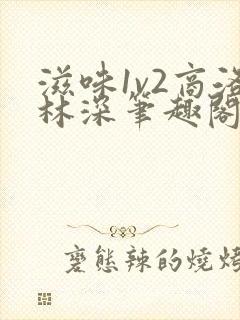 滋味1v2高洛
林深笔趣阁
变态辣的烧烤